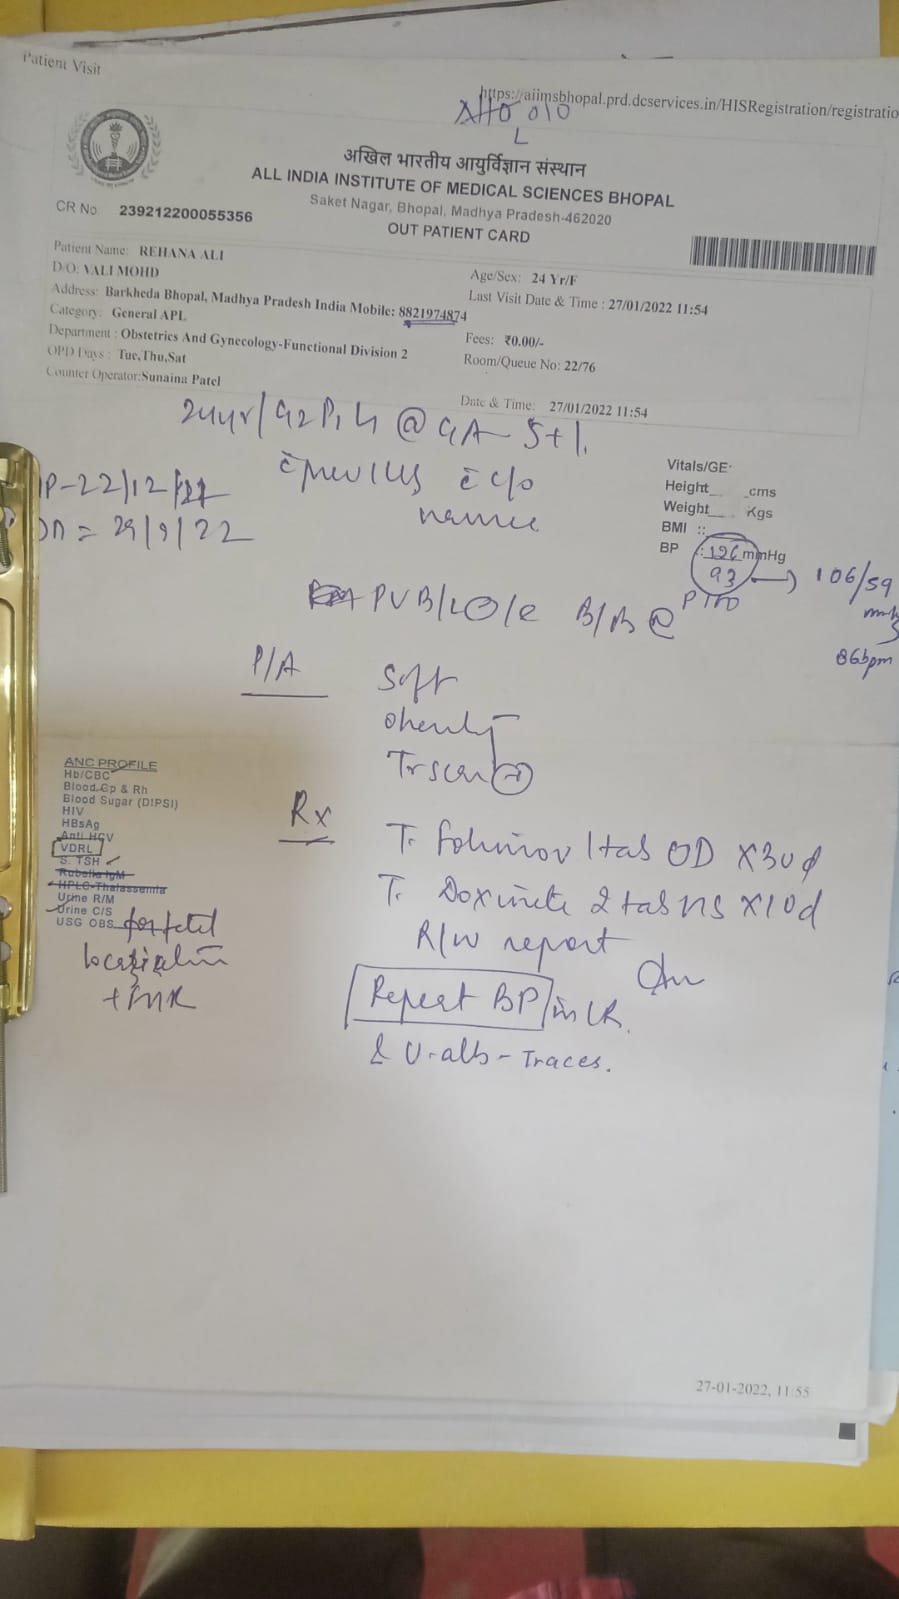 Patient Visit
https://aiimsbhopal.prd.dcservices.in/HISRegistration/registratio
अखिल भारतीय आयुर्विज्ञान संस्थान
ALL INDIA INSTITUTE OF MEDICAL SCIENCES BHOPAL
Saket Nagar, Bhopal, Madhya Pradesh-462020
OUT PATIENT CARD
CR No 239212200055356
Patient Name: REHANA ALI
D/O: VALI MOHD
Age/Sex: 24 Yr/F
Address: Barkheda Bhopal, Madhya Pradesh India Mobile: 8821974874
Last Visit Date & Time : 27/01/2022 11:54
Category: General APL
Department : Obstetrics And Gynecology-Functional Division 2
Fees: ₹0.00/-
OPD Days : Tue,Thu,Sat
Room/Queue No: 22/76
Counter Operator:Sunaina Patel
Date & Time: 27/01/2022 11:54
24yr/G2P1L1 @ GA 5+1
c̄ prev LCS c̄ c/o
Vitals/GE:
Height cms
Weight Kgs
BMI ::
BP : 126 mmHg
93 → 106/59
86bpm
22/12/21
= 29/9/22
P/A
Soft
ANC PROFILE
Hb/CBC
Blood Gp & Rh
Blood Sugar (DIPSI)
HIV
HBsAg
Anti HCV
VDRL
S. TSH
Rubella IgM
HPLC-Thalassemia
Urine R/M
Urine C/S
USG OBS for fetal
localisation
+ FHR
Rx
T. 1 tab OD x 30d
T. Doxinate 2 tab HS x 10d
R/W report
Repeat BP in LR.
& U-alb - Traces.
27-01-2022, 11:55